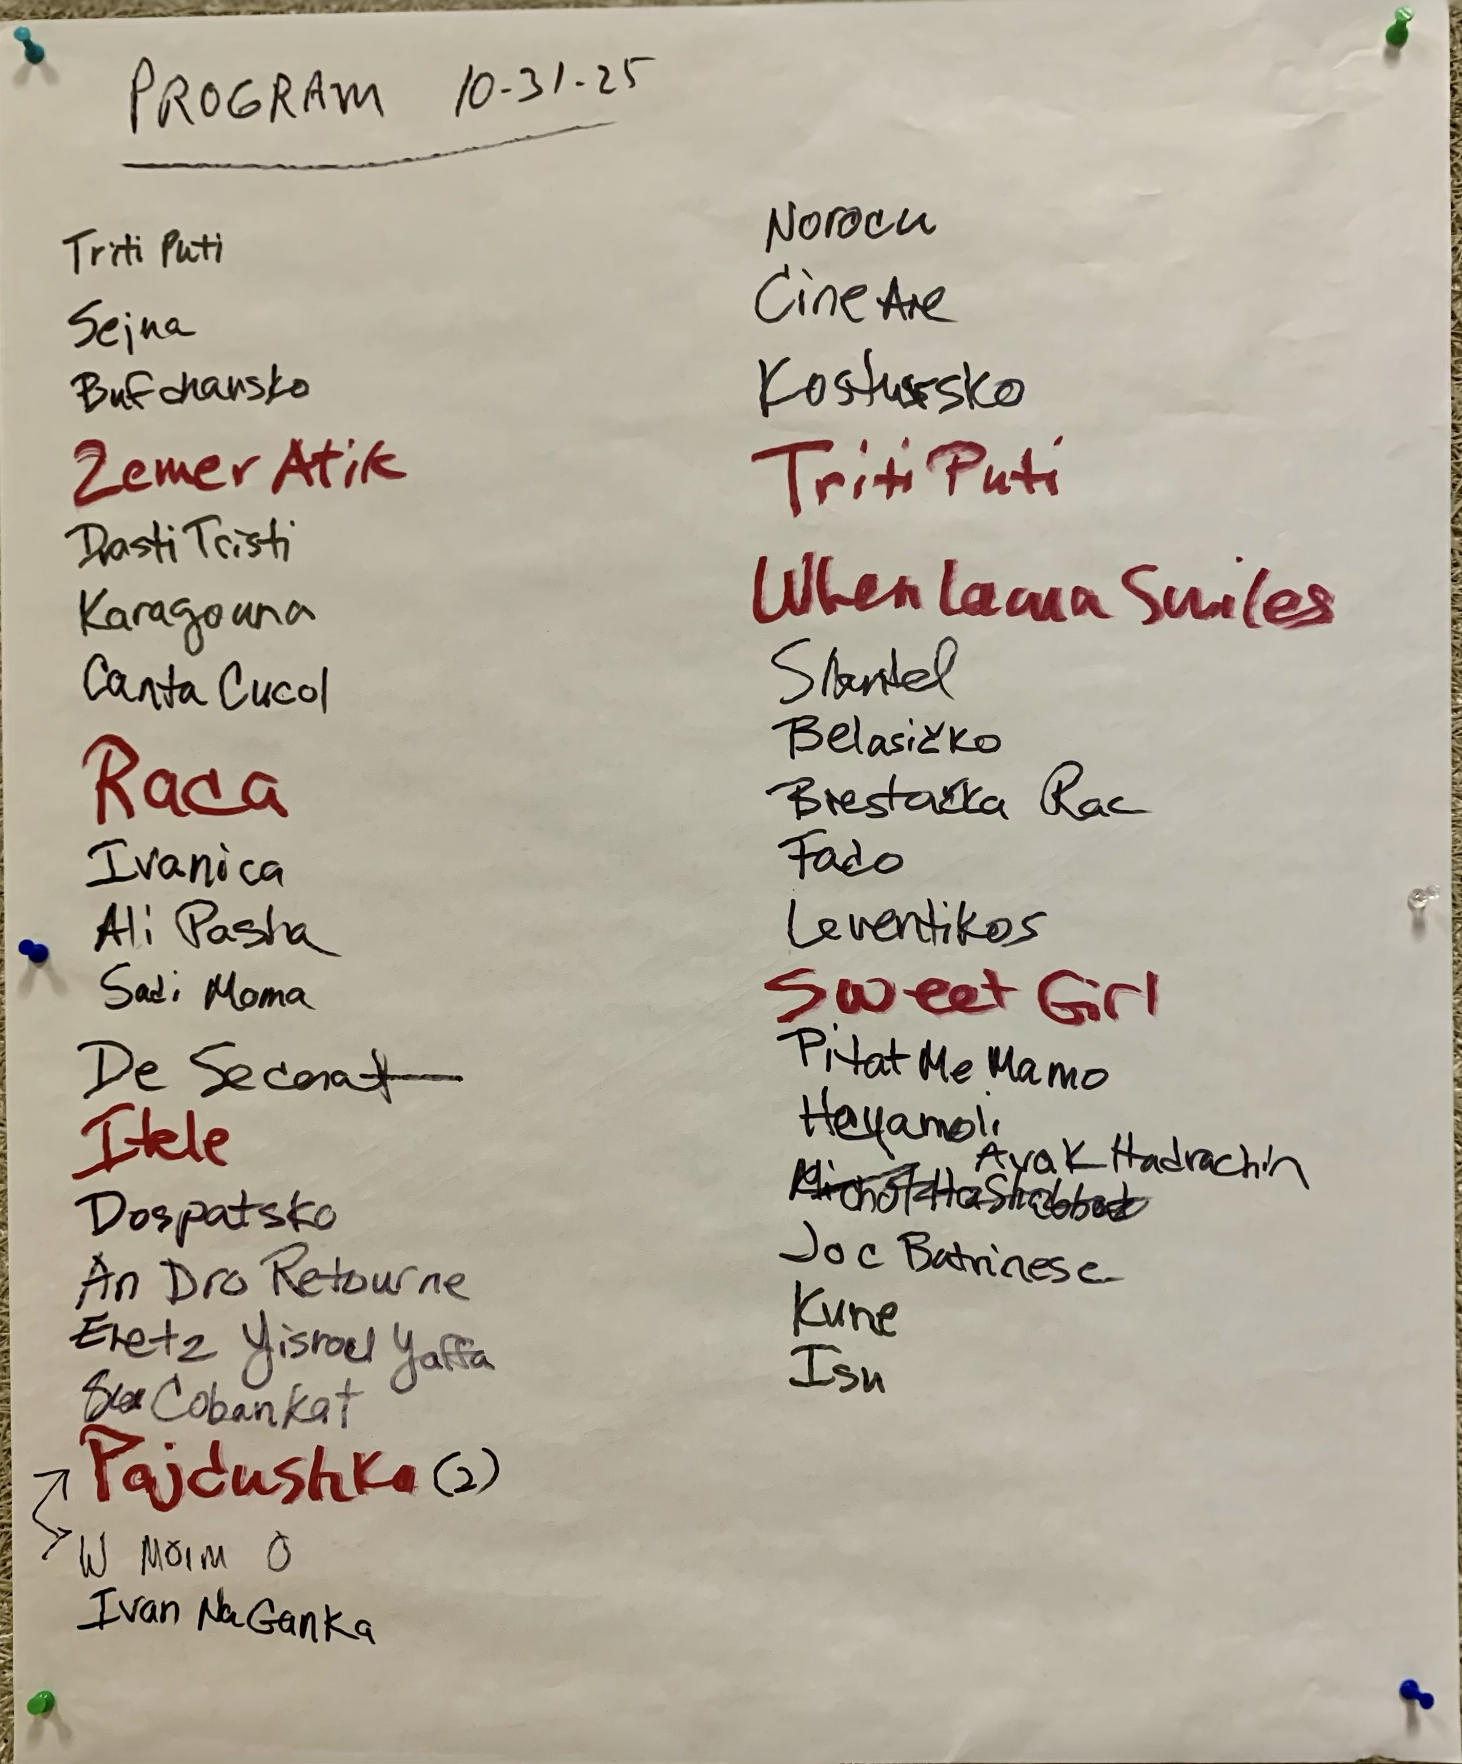 PROGRAM 10-31-25
Triti Puti
Sejna
Bufchansko
Zemer Atik
Dasti Tristi
Karagouna
Canta Cucol
Raca
Ivanica
Ali Pasha
Sadi Moma
De Secerat
Itele
Dospatsko
An Dro Retourne
Eretz Yisroel Yaffa
Cobankat
Pajdushka (2)
W MOIM O
Ivan Na Ganka
Norocu
Cine Are
Kostursko
Triti Puti
When Lama Smiles
Belasičko
Brestačka Rac
Fado
Leventikos
Sweet Girl
Pitat Me Mamo
Heyamoli
Ayak Hadrachin
HaShabbat
Joc Batrinesc
Kune
Isu